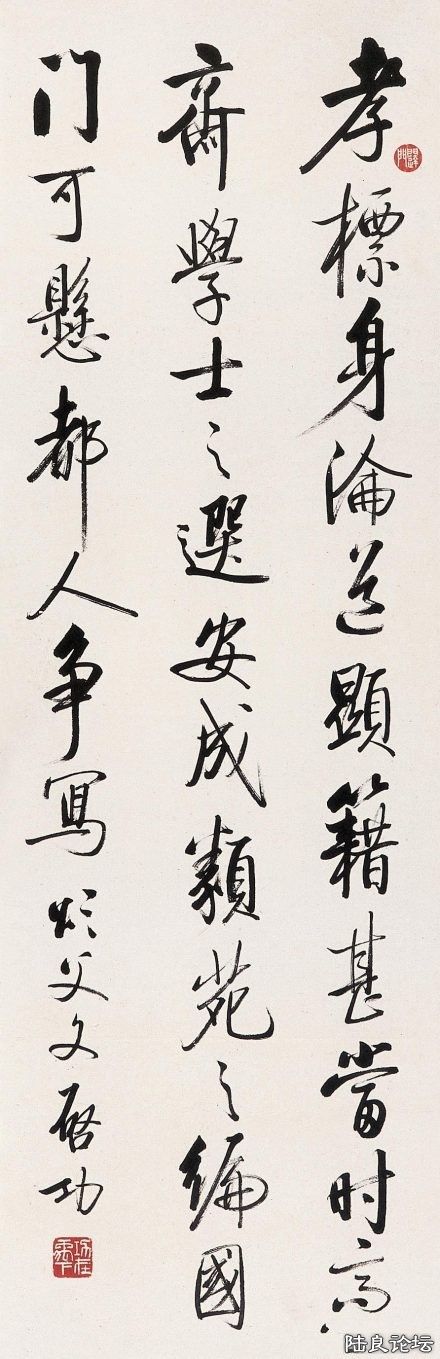 孝標身淪道顯籍甚當时高
齋學士之選安成類苑之編國
门可懸都人争寫父文啓功
陆良论坛